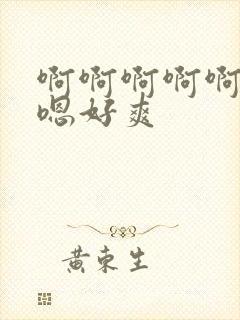 啊啊啊啊啊
嗯好爽
黄东生